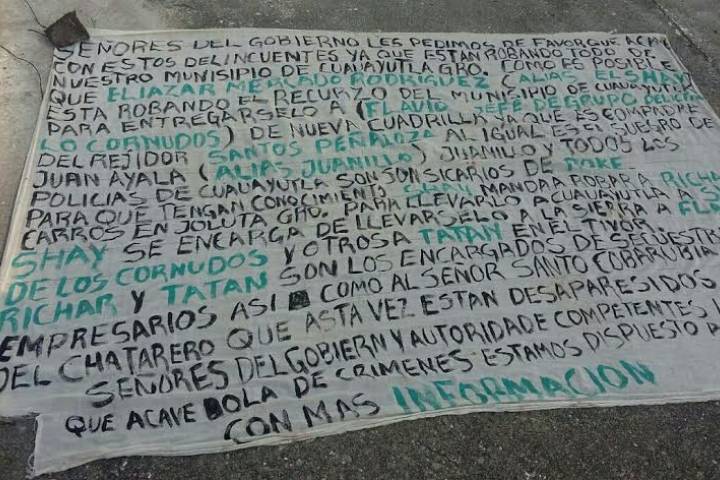 SEÑORES DEL GOBIERNO LES PEDIMOS DE FAVOR QUE ACAV
CON ESTOS DELINCUENTES YA QUE ESTAN ROBANDO TODO DE
NUESTRO MUNISIPIO DE CUAUAYUTLA GRO. COMO ES POSIBLE
QUE ELIAZAR MERCADO RODRIGUEZ (ALIAS EL SHAY)
ESTA ROBANDO EL RECURZO DEL MUNISIPIO DE CUAUAYUTLA
PARA ENTREGARSELO A (FLAVIO JEFE DE GRUPO DELICTI
LO CORNUDOS) DE NUEVA CUADRILLA YA QUE ES COMPADRE
DEL REJIDOR SANTOS PEÑALOZA AL IGUAL ES EL SUEGRO DE
JUAN AYALA (ALIAS JUANILLO) JUANILLO Y TODOS LOS
POLICIAS DE CUAUAYUTLA SON SON SICARIOS DE POKE
PARA QUE TENGAN CONOCIMIENTO SHAY MANDA A ROBAR A RICHA
CARROS EN JOLUTA GRO. PARA LLEVARLO A CUAUAYUTLA A
SHAY SE ENCARGA DE LLEVARSELO A LA SIERRA A FL
DE LOS CORNUDOS Y OTROS A TATAN EN EL TIVOR.
RICHAR Y TATAN SON LOS ENCARGADOS DE SECUESTR
EMPRESARIOS ASI COMO AL SEÑOR SANTO COBARUBIA
DEL CHATARERO QUE ASTA VEZ ESTAN DESAPARESIDOS
SEÑORES DEL GOBIERN Y AUTORIDADE COMPETENTES
QUE ACAVE OLA DE CRIMENES ESTAMOS DISPUESTO
CON MAS INFORMACION